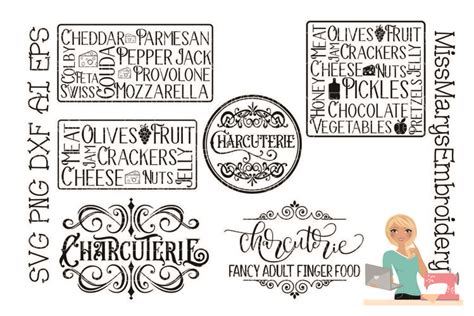 SVG PNG DXF AI EPS
COLBY
CHEDDAR PARMESAN
FETA
GOUDA
PEPPER JACK
PROVOLONE
SWISS
MOZZARELLA
MEAT
OLIVES FRUIT
JAM
CRACKERS
CHEESE NUTS
JELLY
CHARCUTERIE
HONEY
MEAT
OLIVES FRUIT
JAM
CRACKERS
CHEESE NUTS
JELLY
PICKLES
CHOCOLATE
VEGETABLES
PRETZELS
CHARCUTERIE
charcuterie
FANCY ADULT FINGER FOOD
MissMarysEmbroidery